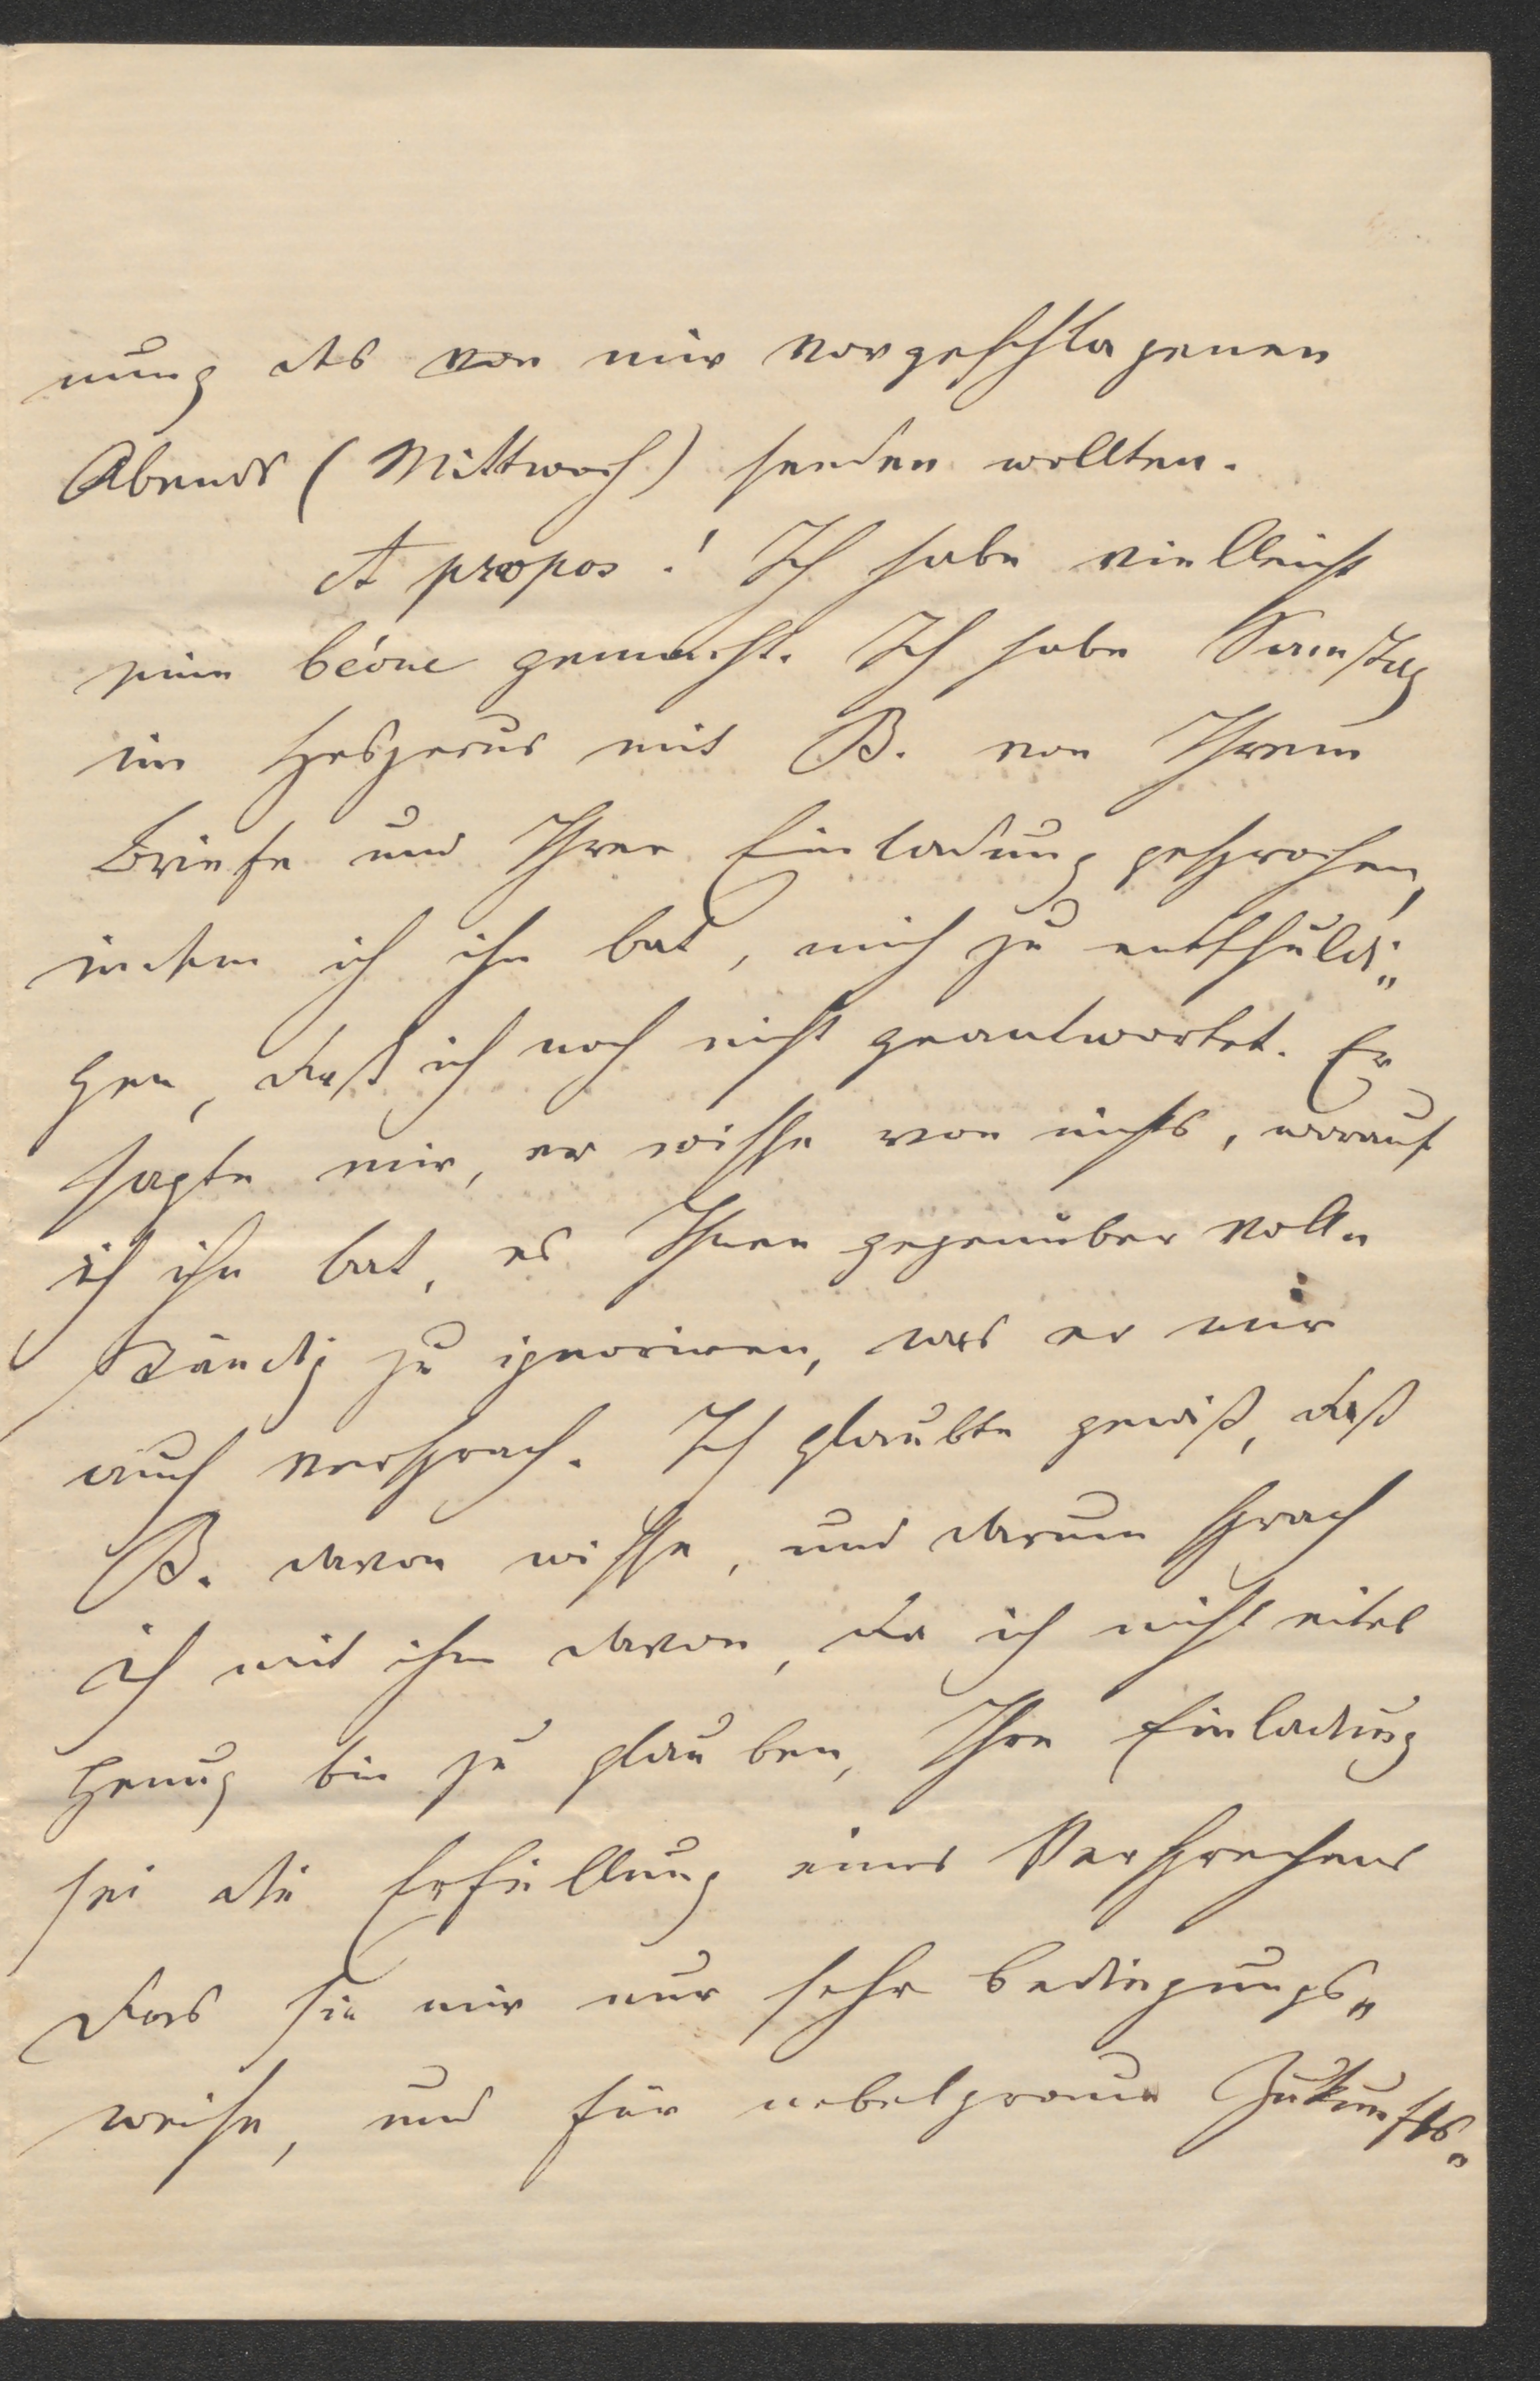 nung des von mir vorgeschlagenen
Abends (Mittwoch) senden wollten.
A propos! Ich habe vielleicht
eine béone gemacht. Ich habe Samstag
im Hesperus mit B. von Ihrem
Briefe und Ihrer Einladung gesprochen,
indem ich ihn bat, mich zu entschuldi„
gen, daß ich noch nicht geantwortet. Er
sagte mir, er wisse von nichts, worauf
ich ihn bat, es Ihnen gegenüber voll„
ständig zu ignoriren, was er mir
auch versprach. Ich glaubte gewiß, daß
B. davon wisse, und darum sprach
ich mit ihm davon, da ich nicht eitel
genug bin zu glauben, Ihre Einladung
sei die Erfüllung eines Versprechens
das sie mir nur sehr bedingungs„
weise, und für nebelgraue Zukunfts„